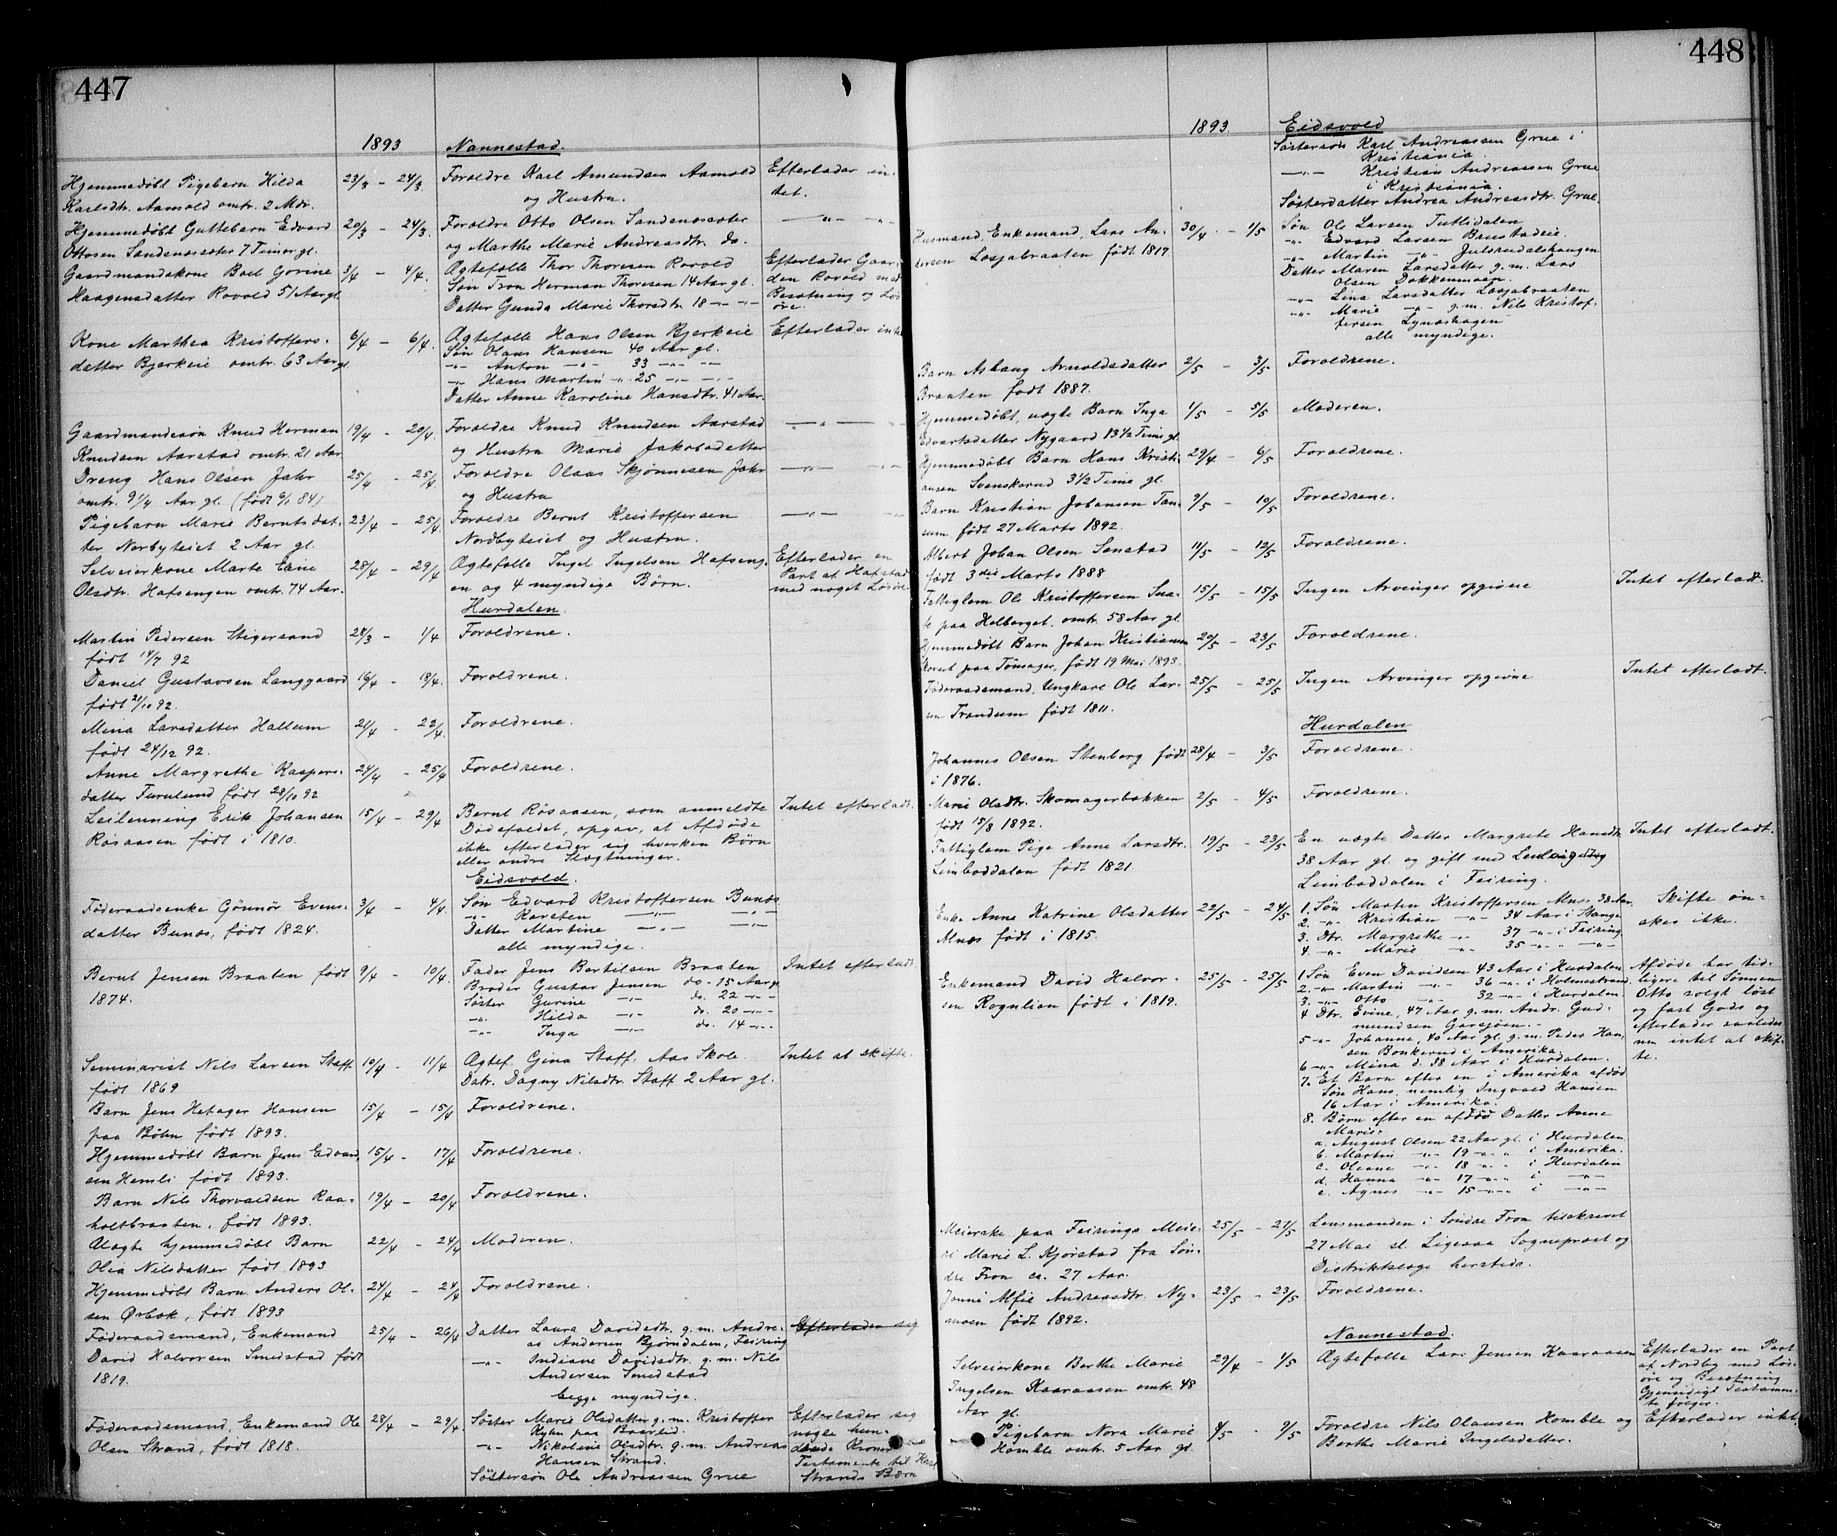 447
1893
Nannestad.
Hjemmedøbt Pigebarn Hilda
Karlsdtr. Aamold omtr. 2 Mdr.
23/3 – 24/3
Foreldre Karl Amundsen Aamold
og Hustru.
Efterlader in-
tet.
Hjemmedøbt Guttebarn Edvard
Ottosen Sandenoseter 7 Timer gl.
20/3 – 24/3.
Foreldre Otto Olsen Sandenoseter
og Marthe Marie Andreasdtr. do.
—"— —"—
Gaardmandskone Boel Gorine
Haagensdatter Rovold 51 Aar gl.
3/4 – 4/4.
Ægtefælle Thor Thoresen Rovold
Søn Tron Herman Thoresen 14 Aar gl.
Datter Gunda Marie Thorsdtr 18 –"– –"–
Efterlader Gaar-
den Rovold med
Besætning og Løs
øre.
Kone Marthea Kristoffers-
datter Bjerkeie omtr. 63 Aar gl.
6/4 – 6/4.
Ægtefælle Hans Olsen Bjerkeie
Søn Olaus Hansen 40 Aar gl.
–"– Anton –"– 33 –"– –"–
–"– Hans Martin –"– 25 –"– –"–
Datter Anne Karoline Hansdtr. 41 Aar.
Efterlader intet
Gaardmandssøn Knud Herman
Knudsen Aarstad omtr. 21 Aar
19/4 – 20/4.
Foreldre Knud Knudsen Aarstad
og Hustru Marie Jakobsdatter
—"— —"—
Dreng Hans Olsen Jahr
omtr. 9 1/4 Aar gl. (født 6/1 84)
25/4 – 25/4
Foreldre Olaus Skjønnesen Jahr
og Hustru
—"— —"—
Pigebarn Marie Berntsdat-
ter Norbyteiet 2 Aar gl.
23/4 – 25/4
Foreldre Bernt Kristoffersen
Nordbyteiet og Hustru.
—"— —"—
Selveierkone Marte Eline
Olsdtr. Hafsengen omtr. 74 Aar.
28/4 – 29/4
Ægtefælle Ingel Ingelsen Hafseng-
en og 4 myndige Børn.
Efterlader en
Part af Hafstad
med noget Løsøre
Hurdalen.
Martin Pedersen Stigersand
født 14/7 92
28/3 – 1/4
Foreldrene.
Daniel Gustavsen Langgaard
født 21/10 92.
16/4 – 18/4.
Foreldrene.
Mina Larsdatter Hallum
født 24/12 92.
21/4 – 22/4.
Foreldrene.
Anne Margrethe Kaspers-
datter Furulund født 28/10 92
24/4 – 25/4
Foreldrene.
Leilænning Erik Johansen
Røsaasen født i 1810.
15/4 – 29/4
Bernt Røsaasen, som anmeldte
Dødsfaldet, opgav, at Afdøde
ikke efterlader sig hverken Børn
eller andre Slægtninger.
Intet efterladt.
Eidsvold.
Føderaadsenke Gønnør Evens-
datter Bunæs, født 1824.
3/4 – 4/4.
Søn Edvard Kristoffersen Bunæs
–"– Karsten —"— —"—
Datter Martine —"— —"—
alle myndige.
Bernt Jensen Braaten født
1874.
9/4 – 10/4.
Fader Jens Bertilsen Braaten
Broder Gustav Jensen do – 15 Aar gl.
Søster Gurine –"– do. 22 –"–
–"– Hilda –"– do. 20 –"–
–"– Inga –"– do. 14 –"–
Intet efterladt.
Seminarist Nils Larsen Staff
født 1869
10/4 – 11/4
Ægtef. Gina Staff, Aas Skole.
Datr. Dagny Nilsdtr. Staff 2 Aar gl.
Intet at skifte.
Barn Jens Hetager Hansen
paa Bøhn født 1893.
15/4 – 15/4
Foreldrene.
Hjemmedøbt Barn Jens Edvard-
sen Hemli født 1893.
15/4 – 17/4
Foreldrene.
Barn Nils Thorvaldsen Raa-
holtbraaten, født 1893.
19/4 – 20/4
Foreldrene.
Uægte hjemmedøbt Barn
Olea Nilsdatter født 1893
22/4 – 24/4
Moderen.
Hjemmedøbt Barn Anders Ol-
sen Ørbæk, født 1893
24/4 – 24/4
Foreldrene.
Føderaadsmand, Enkemand
David Halvorsen Smedstad født
1819.
25/4 – 26/4
Datter Laura Davidsdtr. g. m. Andre-
as Andersen Bjørndalen, Feiring
–"– Indiane Davidsdtr. g. m. Nils
Andersen Smedstad
begge myndige.
Efterlader sig
Føderaadsmand, Enkemand Ole
Olsen Strand, født 1818.
28/4 – 29/4
Søster Marie Olsdatter g. m. Kristoffer
Ryhn paa Baarlid.
–"– Nikoline Olsdtr. g. m. Andreas
Hansen Strand.
Søstersøn Ole Andreassen Grue
Efterlader sig
nogle hun-
drede Kroner
Testamente til
Strands Børn
448
1893.
Eidsvold
Søstersøn Karl Andreassen Grue i
Kristiania.
—"— Kristian Andreassen Grue
i Kristiania.
Søsterdatter Andrea Andreasdtr. Grue
Husmand, Enkemand, Lars An-
dersen Losjabraaten født 1817
30/4 – 1/5
Søn Ole Larsen Tutlidalen
–"– Edvard Larsen Brustadeie.
–"– Martin –"– Julsrudalshaugen
Datter Maren Larsdatter g. m. Lars
Olsen Dokkenmoen.
–"– Lina Larsdatter Losjabraaten
–"– Marie –"– g. m. Nils Kristof-
fersen Lynæshagen
alle myndige.
Barn Aslaug Arnoldsdatter
Braaten født 1887.
2/5 – 3/5
Foreldrene.
Hjemmedøbt, uægte Barn Inga
Edvartsdatter Nygaard 13 1/2 Time gl.
1/5 – 5/5
Moderen.
Hjemmedøbt Barn Hans Kristi-
ansen Svenskerud 3 1/2 Time gl.
29/4 – 6/5
Foreldrene.
Barn Kristian Johansen Tan-
sum født 27 Marts 1892.
7/5 – 10/5
Foreldrene.
Albert Johan Olsen Sønstad
født 3die Marts 1888
11/5 – 12/5
Foreldrene.
Fattiglem Ole Kristoffersen Sna-
le paa Holberget, omtr. 58 Aar gl.
15/5 – 15/5
Ingen Arvinger opgivne
Intet efterladt.
Hjemmedøbt Barn Johan Kristiansen
Korset paa Tønsager, født 19 Mai 1893.
20/5 – 23/5
Foreldrene.
Føderaadsmand, Ungkarl Ole Lar-
sen Trandum født 1811.
25/5 – 25/5
Ingen Arvinger opgivne
Intet efterladt.
Hurdalen
Johannes Olsen Stenberg født
i 1876.
28/4 – 3/5
Foreldrene.
Marie Olsdtr. Skomagerbakken
født 15/8 1892.
2/5 – 4/5
Foreldrene.
Fattiglem Pige Anne Larsdtr.
Limboddalen født 1821.
19/5 – 23/5
En uægte Datter Margrete Hansdtr
38 Aar gl. og gift med
Limboddalen i Feiring.
Intet efterladt.
Enke Anne Katrine Olsdatter
Alnæs født i 1815.
22/5 – 24/5
1. Søn Martin Kristoffersen Alnæs 38 Aar.
2. –"– Kristian –"– 34 Aar i Stange
3. Dtr. Margrethe –"– 37 –"– i Feiring
4. –"– Marie –"– 35 –"– –"–
Skifte øn-
skes ikke.
Enkemand David Halvor-
sen Rognlian født i 1819.
25/5 – 25/5
1. Søn Even Davidsen 43 Aar i Hurdalen
2. –"– Martin –"– 36 –"– i Holmestrand
3. –"– Otto –"– 32 –"– i Hurdalen
4 Dtr. Evine, 47 Aar g. m. Andr. Gud-
mundsen Garsjøen.
5 –"– Johanne, 40 Aar gl. g. m. Peder Han-
sen Bonkerud i Amerika.
6 –"– Mina d. 38 Aar i Hurdalen.
7. Et Barn efter en i Amerika afdød
Søn Hans, nemlig Ingvald Hansen
16 Aar i Amerika.
8. Børn efter en afdød Datter Anne
Marie:
a. August Olsen 22 Aar gl. i Hurdalen
b. Martin –"– 19 –"– i Amerika.
c. Oleane –"– 18 –"– i Hurdalen
d. Hanna –"– 17 –"– i –"–
e. Agnes –"– 15 –"– i –"–
Afdøde har tid-
ligere til Sønnen
Otto solgt løst
og fast Gods og
efterlader saaledes
nu intet at skif-
te.
Meierske paa Feirings Meie-
ri Marie L. Kjørstad fra Søn-
dre Fron ca. 27 Aar.
25/5 – 27/5
Lensmanden i Søndre Fron tilskrevet
27 Mai sl. Ligesaa Sogneprest og
Distriktslæge hersteds.
Jenni Alfie Andreasdtr. Ny-
moen født 1892.
23/5 – 23/5
Foreldrene.
Nannestad.
Selveierkone Berthe Marie
Ingelsen Kaaraasen omtr. 48
Aar gl.
29/4 – 1/5
Ægtefælle Lars Jensen Kaaraasen
Efterlader en Part
af Nordby med Løs-
øre og Besætning
Gjensidigt Testamen-
te følger.
Pigebarn Nora Marie
Homble omtr. 5 Aar gl.
8/5 – 9/5
Foreldre Nils Olausen Homble og
Berthe Marie Ingelsdatter.
Efterlader intet